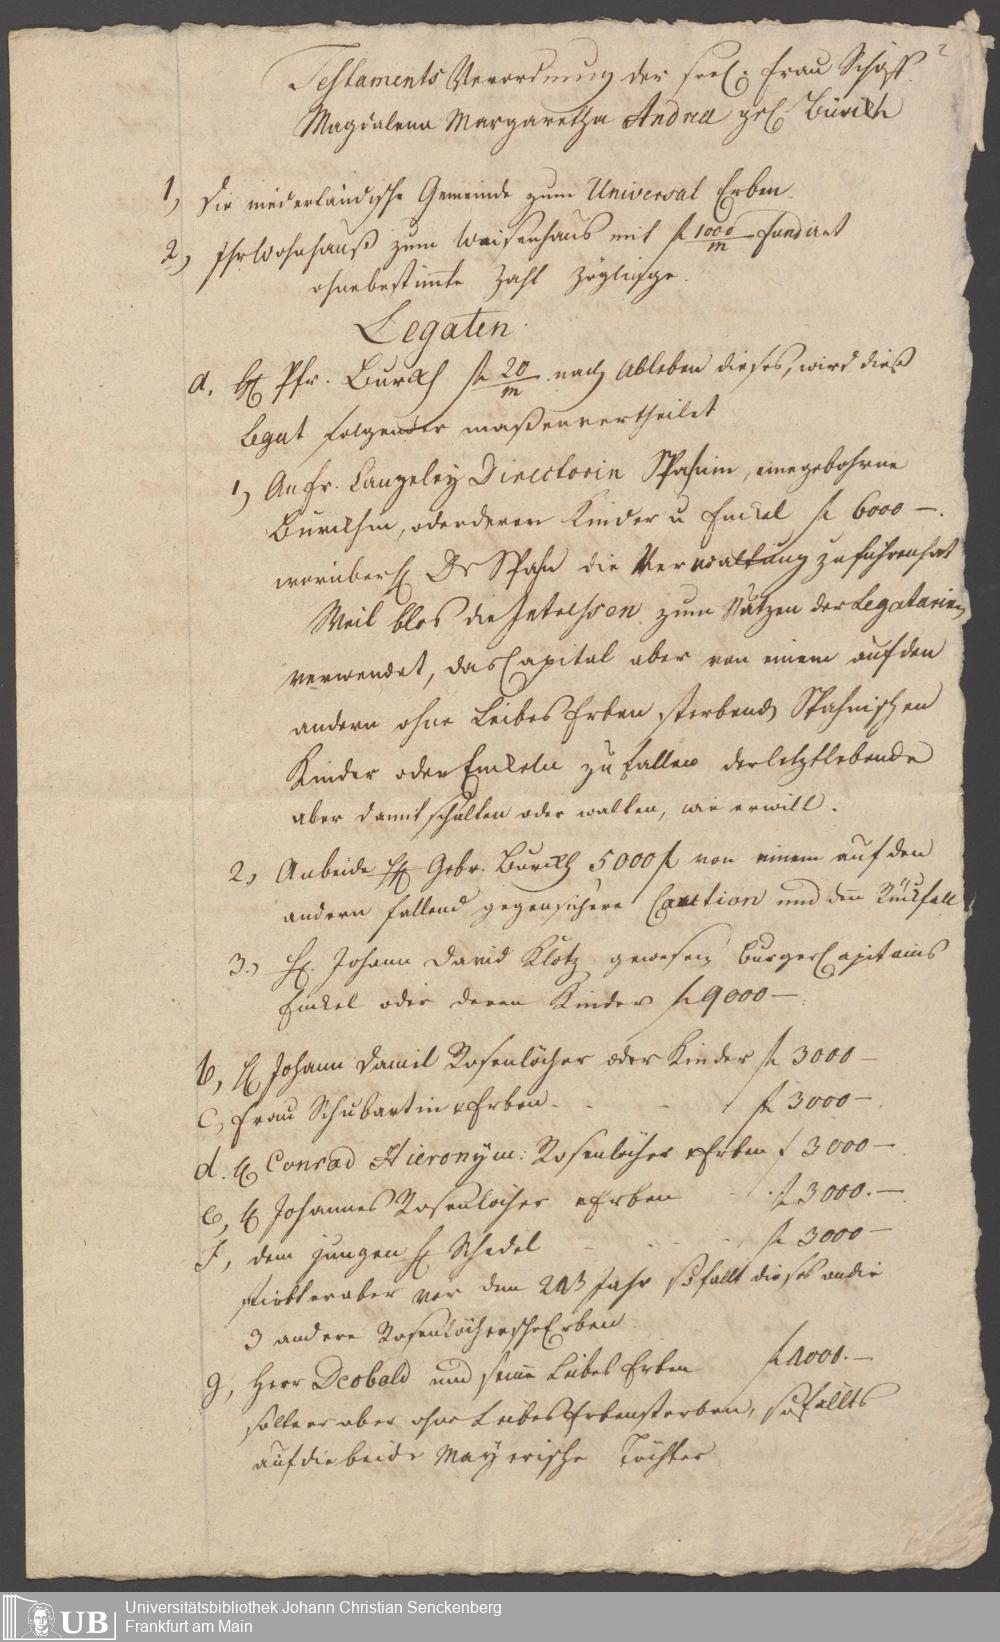 Testaments Verordnung der seel. Frau Schöff.
Magdalena Margaretha Andrea geb. Burckh
1, die niederländische Gemeinde zum Universal Erben.
2, Ihr Wohnhauß zum Waisenhaus mit fl 1000/m fundirt
ohnebestimte Zahl Zöglinge.
Legaten.
a. H Pfr. Burckh fl 20/m. nach Ableben dieses, wird dieß
Legat folgender maßen vertheilet
1, An Fr. Directorin Spahnin, eine gebohrne
Burckhin, oder deren Kinder u Enckel fl 6000 —.
worüber H Dr Spahn die Verwaltung zu führen hat
Weil blos die Interessen zum Nutzen der Legatarien
verwendet, das Capital aber von einem auf den
andern ohne Leibes Erben sterbende Spahnischen
Kinder oder Enkeln zu fallen der letztlebende
aber damit schalten oder walten, wie er will.
2, An beide HH Gebr. Burckh 5000 fl von einem auf den
andern fallend gegen sichere Caution und den Rückfall
3., H. Johann David Klotz gewesenen Burger Capitains
Enckel oder deren Kinder fl 9000 —.
b, H Johann Daniel Rosenlöcher oder Kinder fl 3000 —
c, Frau Schubartin Erben. - - fl 3000 —.
d. H Conrad Hieronym: Rosenlöcher Erben f 3000 —
e, H Johannes Rosenlöcher Erben fl 3000. —
f, dem jungen H Schedel - - - fl 3000 —
stirbt er aber vor dem Jahr so fällt dieses an die
3 andere Rosenlöchersche Erben.
g, Herr Deobald und seine Leibes Erben fl 1000. —
solte er aber ohne Leibes Erben sterben, so fällts
auf die beide Mayerische Töchter
2
UB
Universitätsbibliothek Johann Christian Senckenberg
Frankfurt am Main